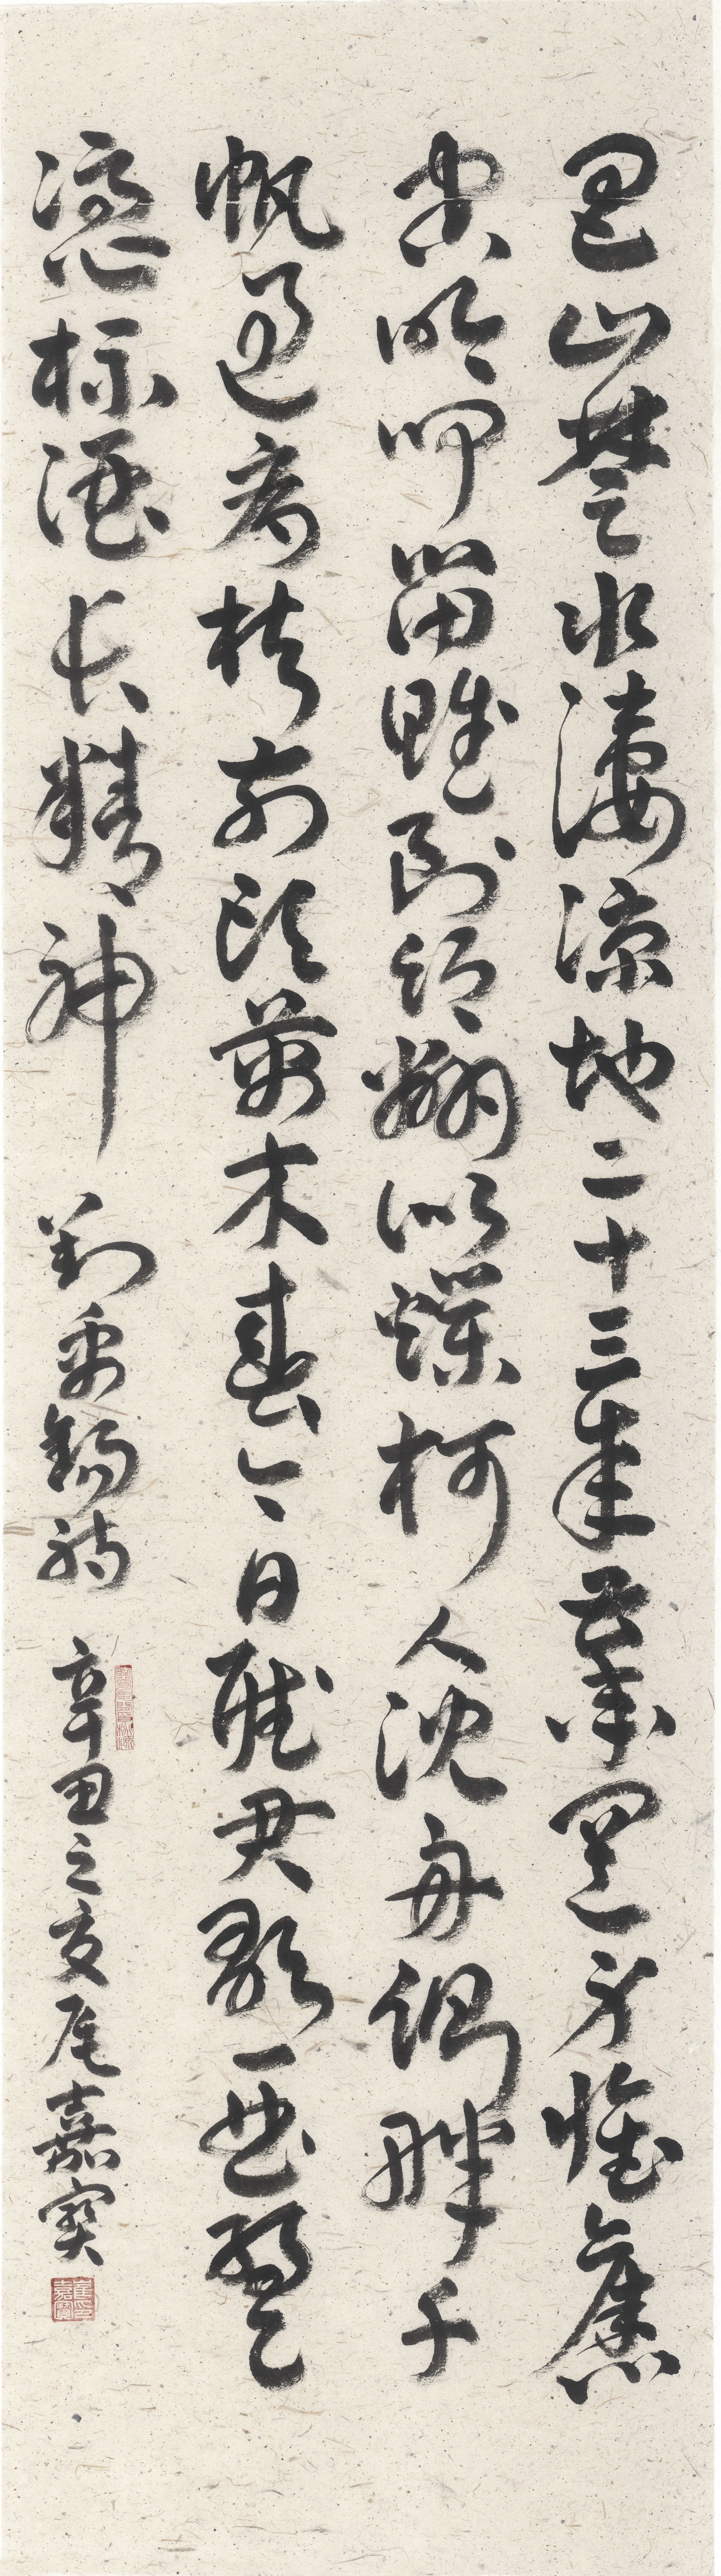 巴山楚水淒涼地二十三年棄置身懷舊
空吟聞笛賦到鄉翻似爛柯人沈舟側畔千
帆過病樹前頭萬木春今日聽君歌一曲暫
憑杯酒長精神 劉禹錫詩 辛丑之夏崔嘉寶